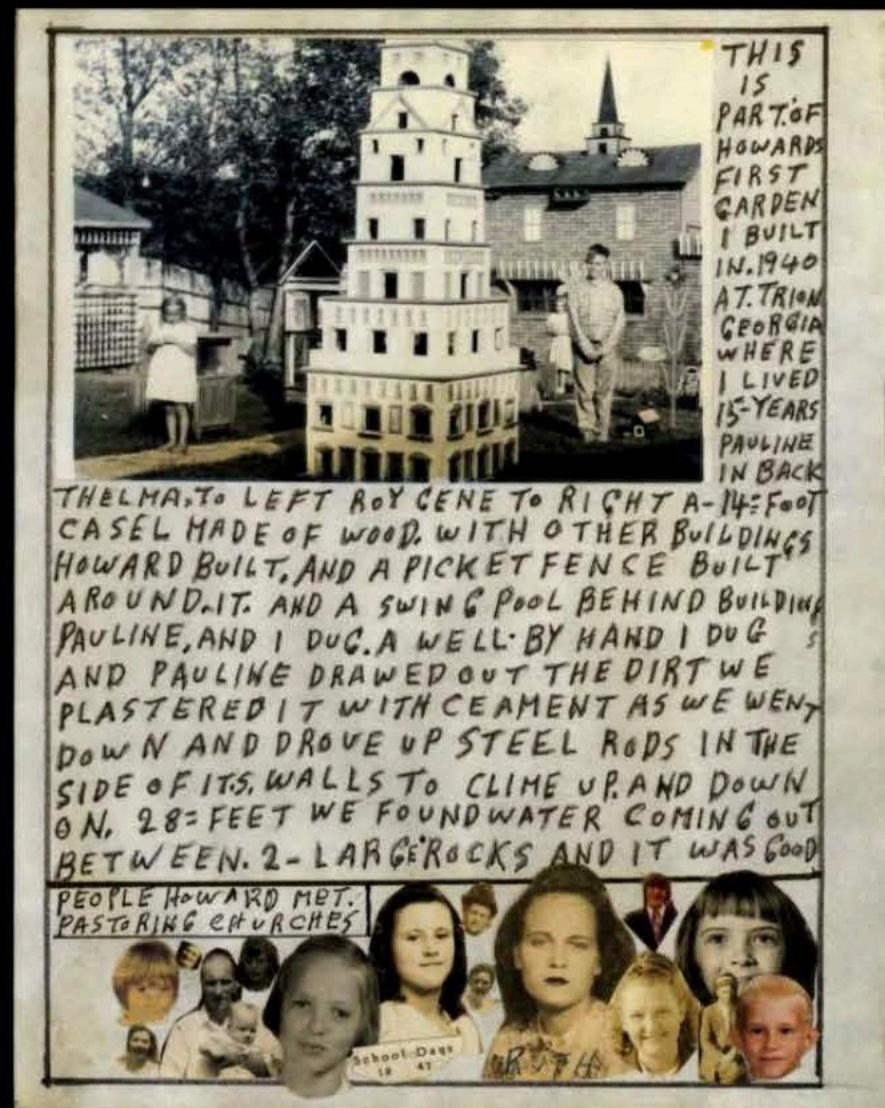 THIS
IS
PART.OF
HOWARDS
FIRST
GARDEN
I BUILT
IN.1940
AT.TRION
GEORGIA
WHERE
I LIVED
15-YEARS
PAULINE
IN BACK
THELMA.TO LEFT ROY GENE TO RIGHT A-14=FOOT
CASEL MADE OF WOOD. WITH OTHER BUILDINGS
HOWARD BUILT. AND A PICKET FENCE BUILT
AROUND.IT. AND A SWING POOL BEHIND BUILDINGS
PAULINE, AND I DUG. A WELL. BY HAND I DUG
AND PAULINE DRAWED OUT THE DIRT WE
PLASTERED IT WITH CEAMENT AS WE WENT
DOWN AND DROVE UP STEEL RODS IN THE
SIDE OF ITS. WALLS TO CLIME UP. AND DOWN
ON. 28=FEET WE FOUND WATER COMING OUT
BETWEEN. 2-LARGE ROCKS AND IT WAS GOOD
PEOPLE HOWARD MET.
PASTORING CHURCHES
School Days
19 47
RUTH